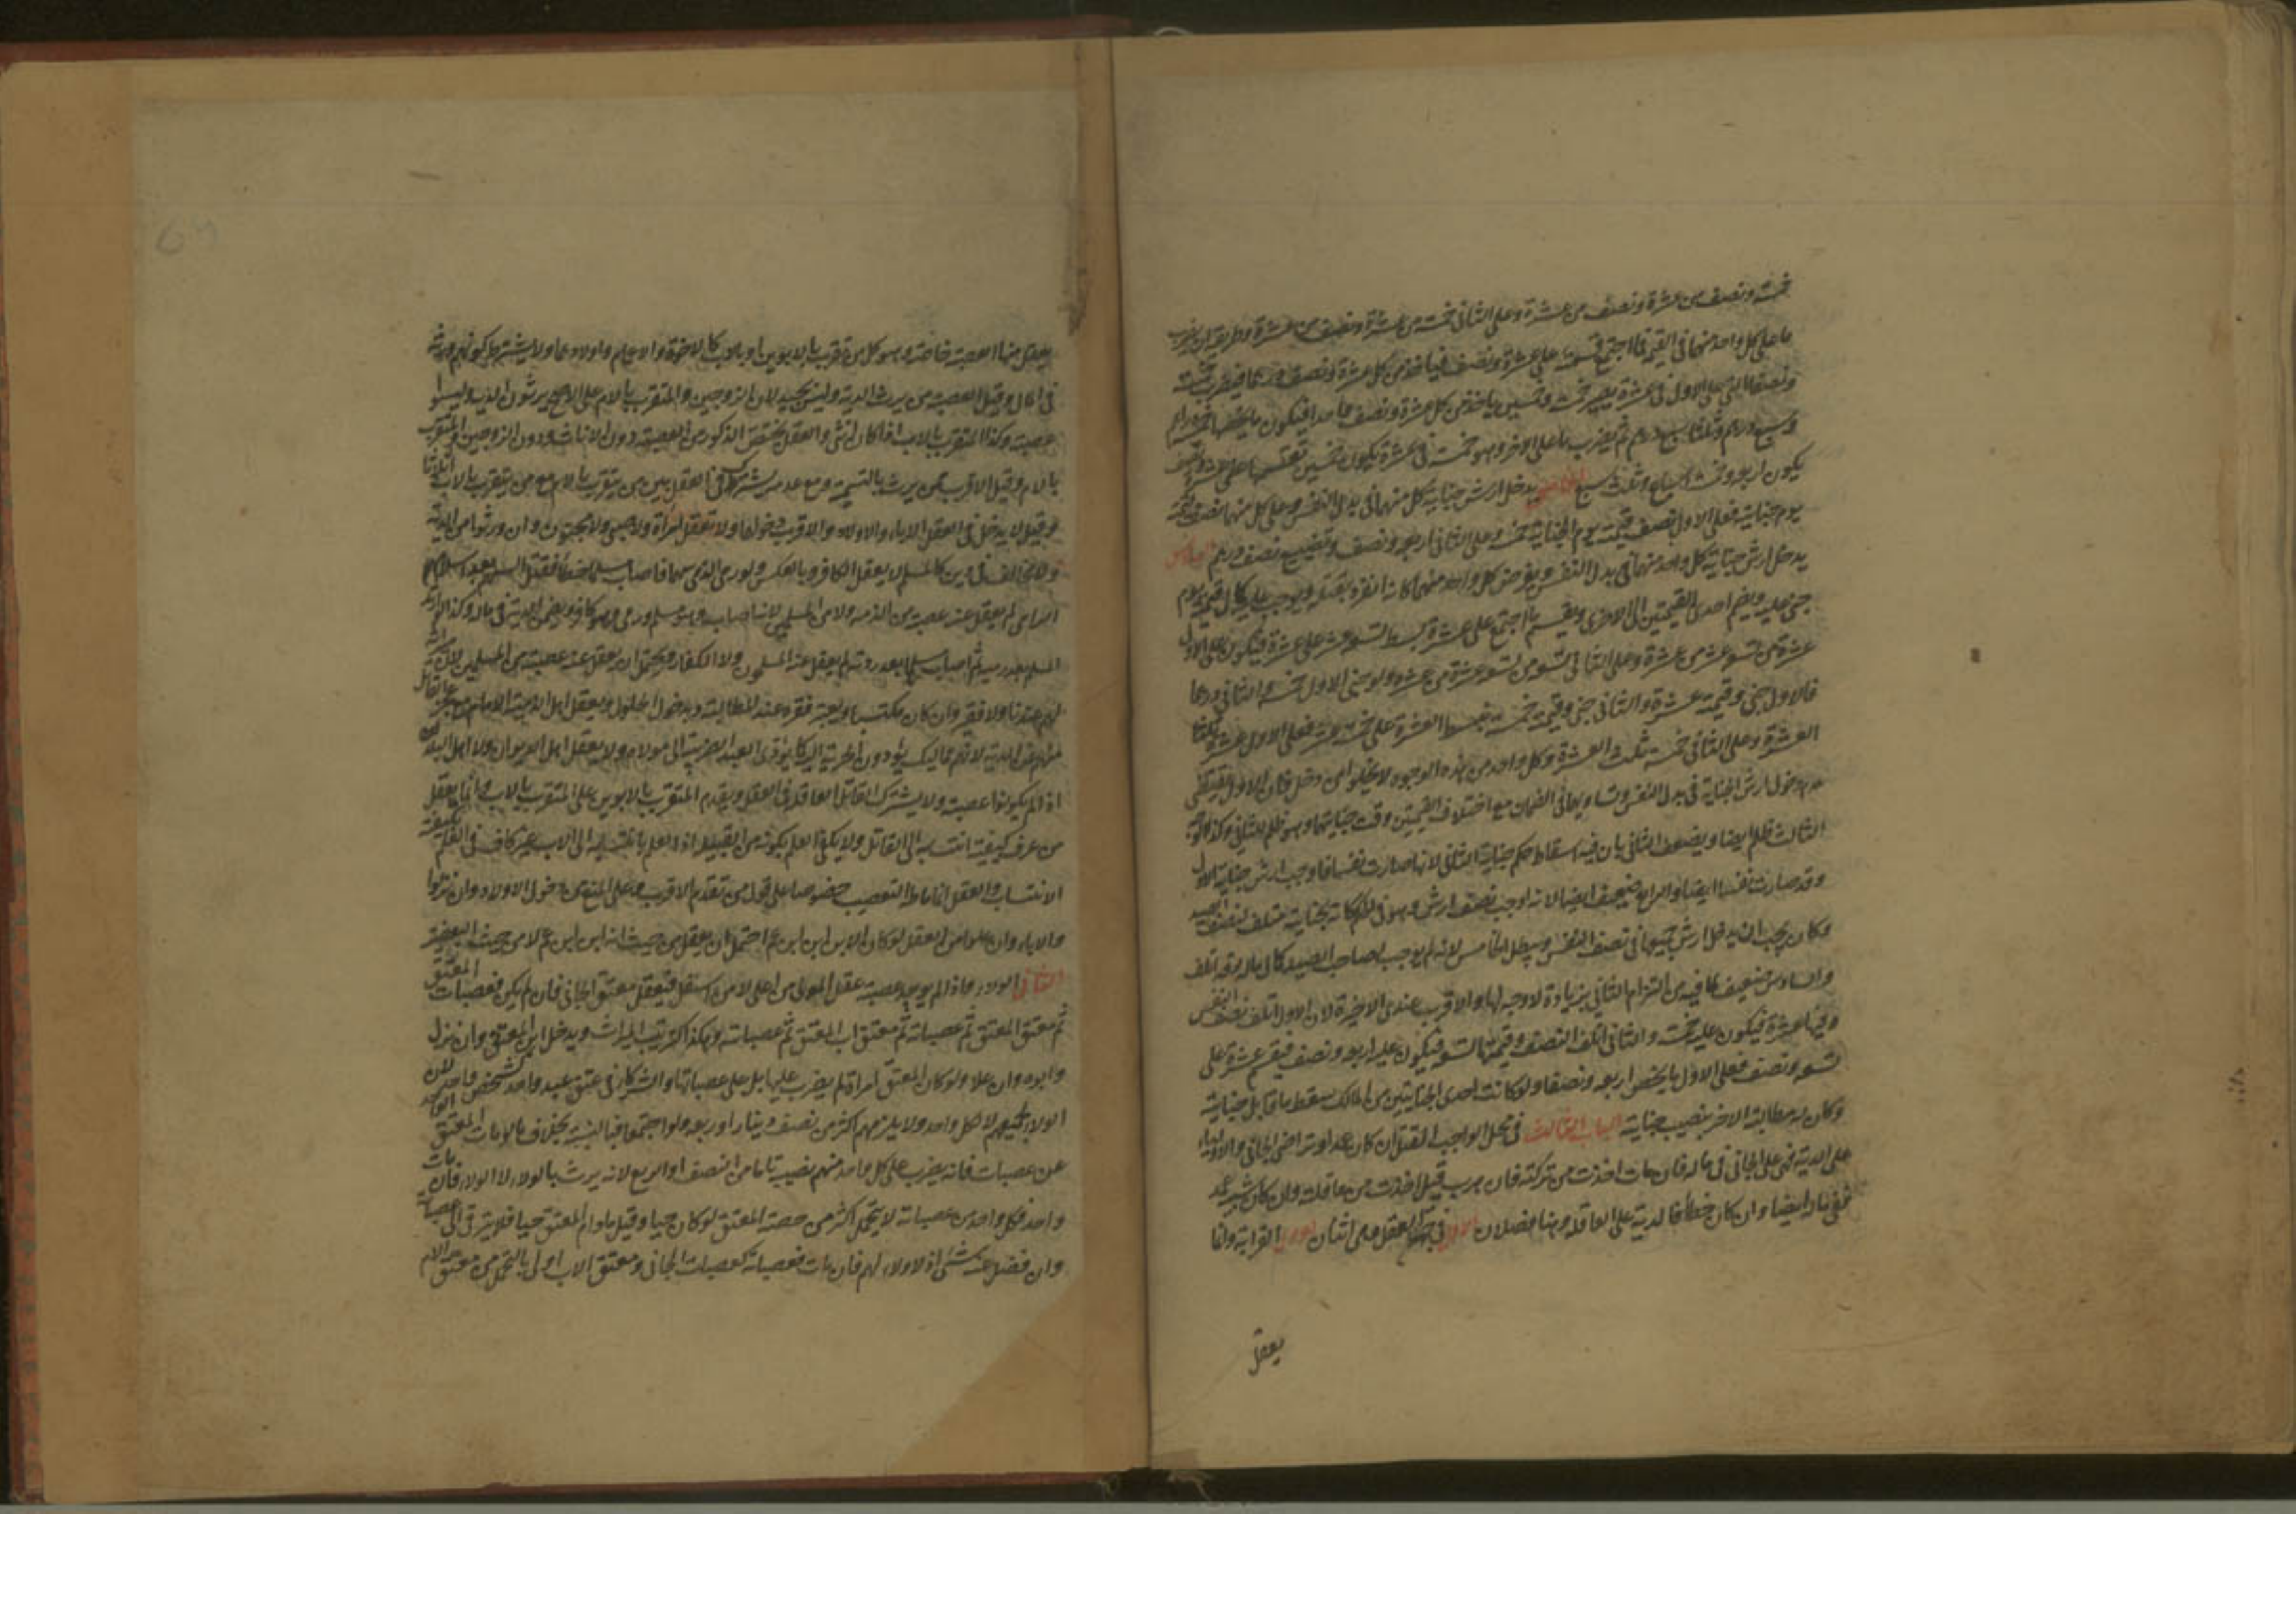 خمسة ونصف من عشرة ونصف من عشرة وعلى الثاني خمسة من عشرة ونصف من عشرة وطريقه ان يضرب
ما على كل واحد منهما في القيمة فما اجتمع قسمته على عشرة ونصف فيأخذ من كل عشرة ونصف درهما فيضرب خمسة
ونصفا التي على الاول في عشرة يصير خمسة وخمسين يأخذ من كل عشرة ونصف واحدا فيكون ما يخصها خمسة دراهم
وسبع درهم وثلثا سبع درهم ثم يضرب ما على الاخر وهو خمسة في عشرة يكون خمسين تقسمها على عشرة ونصف
يكون اربعة وخمسة اسباع وثلث سبع الخامس يدخل ارش جناية كل منهما في بدل النفس وعلى كل منهما نصف قيمته
يوم جنايته فعلى الاول نصف قيمته يوم الجناية خمسة وعلى الثاني اربعة ونصف وتضيع نصف درهم السادس
يدخل ارش جناية كل واحد منهما في بدل النفس ويفرض كل واحد منهما كانه انفرد بقتله ويوجب عليه كمال قيمته يوم
جنى عليه ويضم احدى القيمتين الى الاخرى ويقسم ما اجتمع على عشرة يبسط تسعة عشر على عشرة فيكون على الاول
عشرة من تسعة عشر من عشرة وعلى الثاني تسعة من تسعة عشر من عشرة ولو جنى الاول خمسة والثاني درهما
فالاول جنى وقيمته عشرة والثاني جنى وقيمته خمسة فيبسط العشرة على خمسة عشر فعلى الاول عشرة ثلثا
العشرة وعلى الثاني خمسة ثلث العشرة وكل واحد من هذه الوجوه لا يخلو من دخل فان الاول يقتضي
عدم دخول ارش الجناية في بدل النفس وتساويهما في الضمان مع اختلاف القيمتين وقت جنايتهما وهو ظلم للثاني وكذا
الثالث ظلم ايضا ويضعف الثاني بان فيه اسقاط حكم جناية الثاني لانها صارت نفسا فاوجب ارش جناية الاول
وقد صارت نفسا ايضا والرابع ضعيف ايضا لانه اوجب نصف ارش وهو في كانه بجناية متلف لنصف العبد
وكان يجب ان يدخل ارش جميعها في نصف النفس ويبطل الخامس لانه لم يوجب لصاحب الصيد كمال ماله وقد اتلف
والسادس ضعيف لما فيه من التزام الثاني بزيادة لا وجه لها والاقرب عندي الاخيرة لان الاول اتلف نصف النفس
وقيمتها عشرة فيكون عليه خمسة والثاني اتلف النصف وقيمتها تسعة فيكون عليه اربعة ونصف فيقسم عشرة على
تسعة ونصف فعلى الاول ما يخص اربعة ونصفا ولو كانت احدى الجنايتين من المالك سقط ما قابل جنايته
وكان له مطالبة الاخر بنصيب جنايته الباب الثالث في محل الواجب القتل ان كان عمدا وتراضى الجاني والاولياء
على الدية فهي على الجاني في ماله فان مات اخذت من تركته فان هرب قيل اخذت من عاقلته وان كان شبيه عمد
ففي ماله ايضا وان كان خطأ فالدية على العاقلة وهنا فصلان الاول في جهة العقل وهي اثنان الاول القرابة وانما
يعقل
يعقل منها العصبة خاصة وهو كل من تقرب بالابوين او بالاب كالاخوة والاعمام واولادهما ولا يشترط كونهم ورثة
في الحال وقيل العصبة من يرث الدية وليس بجيد لان الزوجين والمتقرب بالام على الاصح يرثون الدية وليسوا
عصبة وكذا المتقرب بالاب اذا كان انثى والعقل يختص الذكور من العصبة دون الاناث ودون الزوجين والمتقرب
بالام وقيل الاقرب ممن يرث بالتسمية ومع عدمه يشترك في العقل بين من يتقرب بالام مع من يتقرب بالاب اثلاثا
وقيل لا يدخل في العقل الاباء والاولاد والاقرب دخولهما ولا تعقل المرأة ولا صبي ولا مجنون وان ورثوا من الدية
ولا مخالف في دين كالمسلم لا يعقل الكافر وبالعكس ولو رمى الذمي سهما فاصاب مسلما خطأ فقتل السهم بعد اسلام
الرامي لم يعقل عنه عصبته من الذمة ولا من المسلمين لانه اصاب وهو مسلم ورمى وهو كافر ويضمن الدية في ماله وكذا لو ارتد
المسلم بعد رميه ثم اصاب مسلما بعد ردته لم يعقل عنه المسلمون ولا الكفار ويحتمل ان يعقل عنه عصبته من المسلمين لان ميراثه
لهم عندنا ولا فقير وان كان مكتسبا ويعتبر فقره عند المطالبة وهو حول الحلول ويعقل اهل الذمة الامام مع عجز القاتل
منهم عن الدية لانهم مماليك يؤدون الجزية اليه كما يؤدي العبد الضريبة الى مولاه ولا يعقل اهل الديوان ولا اهل البلد
اذا لم يكونوا عصبة ولا يشترك القاتل العاقلة في العقل ويقدم المتقرب بالابوين على المتقرب بالاب وانما يعقل
من عرف كيفية انتسابه الى القاتل ولا يكفي العلم بكونه من القبيلة اذ العلم بانتسابه الى الاب غير كاف في العلم بكيفية
الانتساب والعقل انما مناطه التعصيب خصوصا على قول من تقدم الاقرب وعلى المنع من دخول الاولاد وان نزلوا
والاباء وان علوا من العقل لو كان الابن ابن ابن عم احتمل ان يعقل من حيث انه ابن ابن عم لا من حيث البعضية
الثاني الولاء واذا لم يوجد عصبة عقل المولى من اعلى لا من اسفل فيعقل معتق الجاني فان لم يكن فعصبات المعتق
ثم معتق المعتق ثم عصباته ثم معتق اب المعتق ثم عصباته وهكذا كترتيب الميراث ويدخل ابن المعتق وان نزل
وابوه وان علا ولو كان المعتق امرأة لم يضرب عليها بل على عصباتها والشركاء في عتق عبد واحد كشخص واحد لان
الولاء لجميعهم لا لكل واحد ولا يلزمهم اكثر من نصف دينار او ربعه ولو اجتمعوا فبالنسبة بخلاف ما لو مات المعتق الواحد
عن عصبات فانه يضرب على كل واحد منهم نصيبه تاما من النصف او الربع لانه يرث بالولاء لا الولاء فان مات
واحد فكل واحد من عصباته لا يتحمل اكثر من حصته المعتق لو كان حيا وقيل ما دام المعتق حيا فلا يترقى الى عصباته
وان فضل عنه شيء اذ لا ولاء لهم فان مات فعصباته كعصبات الجاني ومعتق الاب اولى بالتحمل من معتق الام